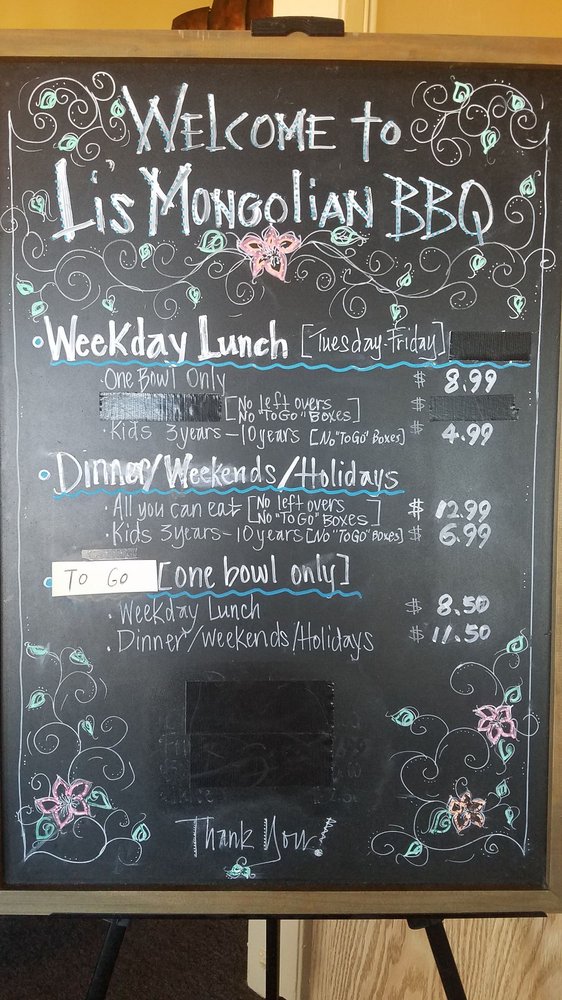 Welcome to
Li's Mongolian BBQ
Weekday Lunch [Tuesday-Friday]
One Bowl Only $ 8.99
[No left overs
No "To Go" Boxes] $
Kids 3years-10years [No "To Go" Boxes] $ 4.99
Dinner/Weekends/Holidays
All you can eat [No left overs
No "To Go" Boxes] $ 12.99
Kids 3years-10years [No "To Go" Boxes] $ 6.99
To Go [one bowl only]
Weekday Lunch $ 8.50
Dinner/Weekends/Holidays $ 11.50
Thank You!